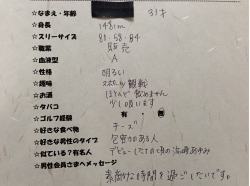 ☆なまえ・年齢 31才
☆身長 148cm
☆スリーサイズ 81.58.84
☆職業 販売
☆血液型 A
☆性格 明るい
☆趣味 スポーツ観戦
☆お酒 ほとんど飲めません
☆タバコ 少し吸います
☆ゴルフ経験 有・無
☆好きな食べ物 チーズ
☆好きな男性のタイプ 包容力のある人
☆似ている?有名人 デビューしたての頃の浜崎あゆみ
☆男性会員さまへメッセージ
素敵な時間を過ごしたいです。